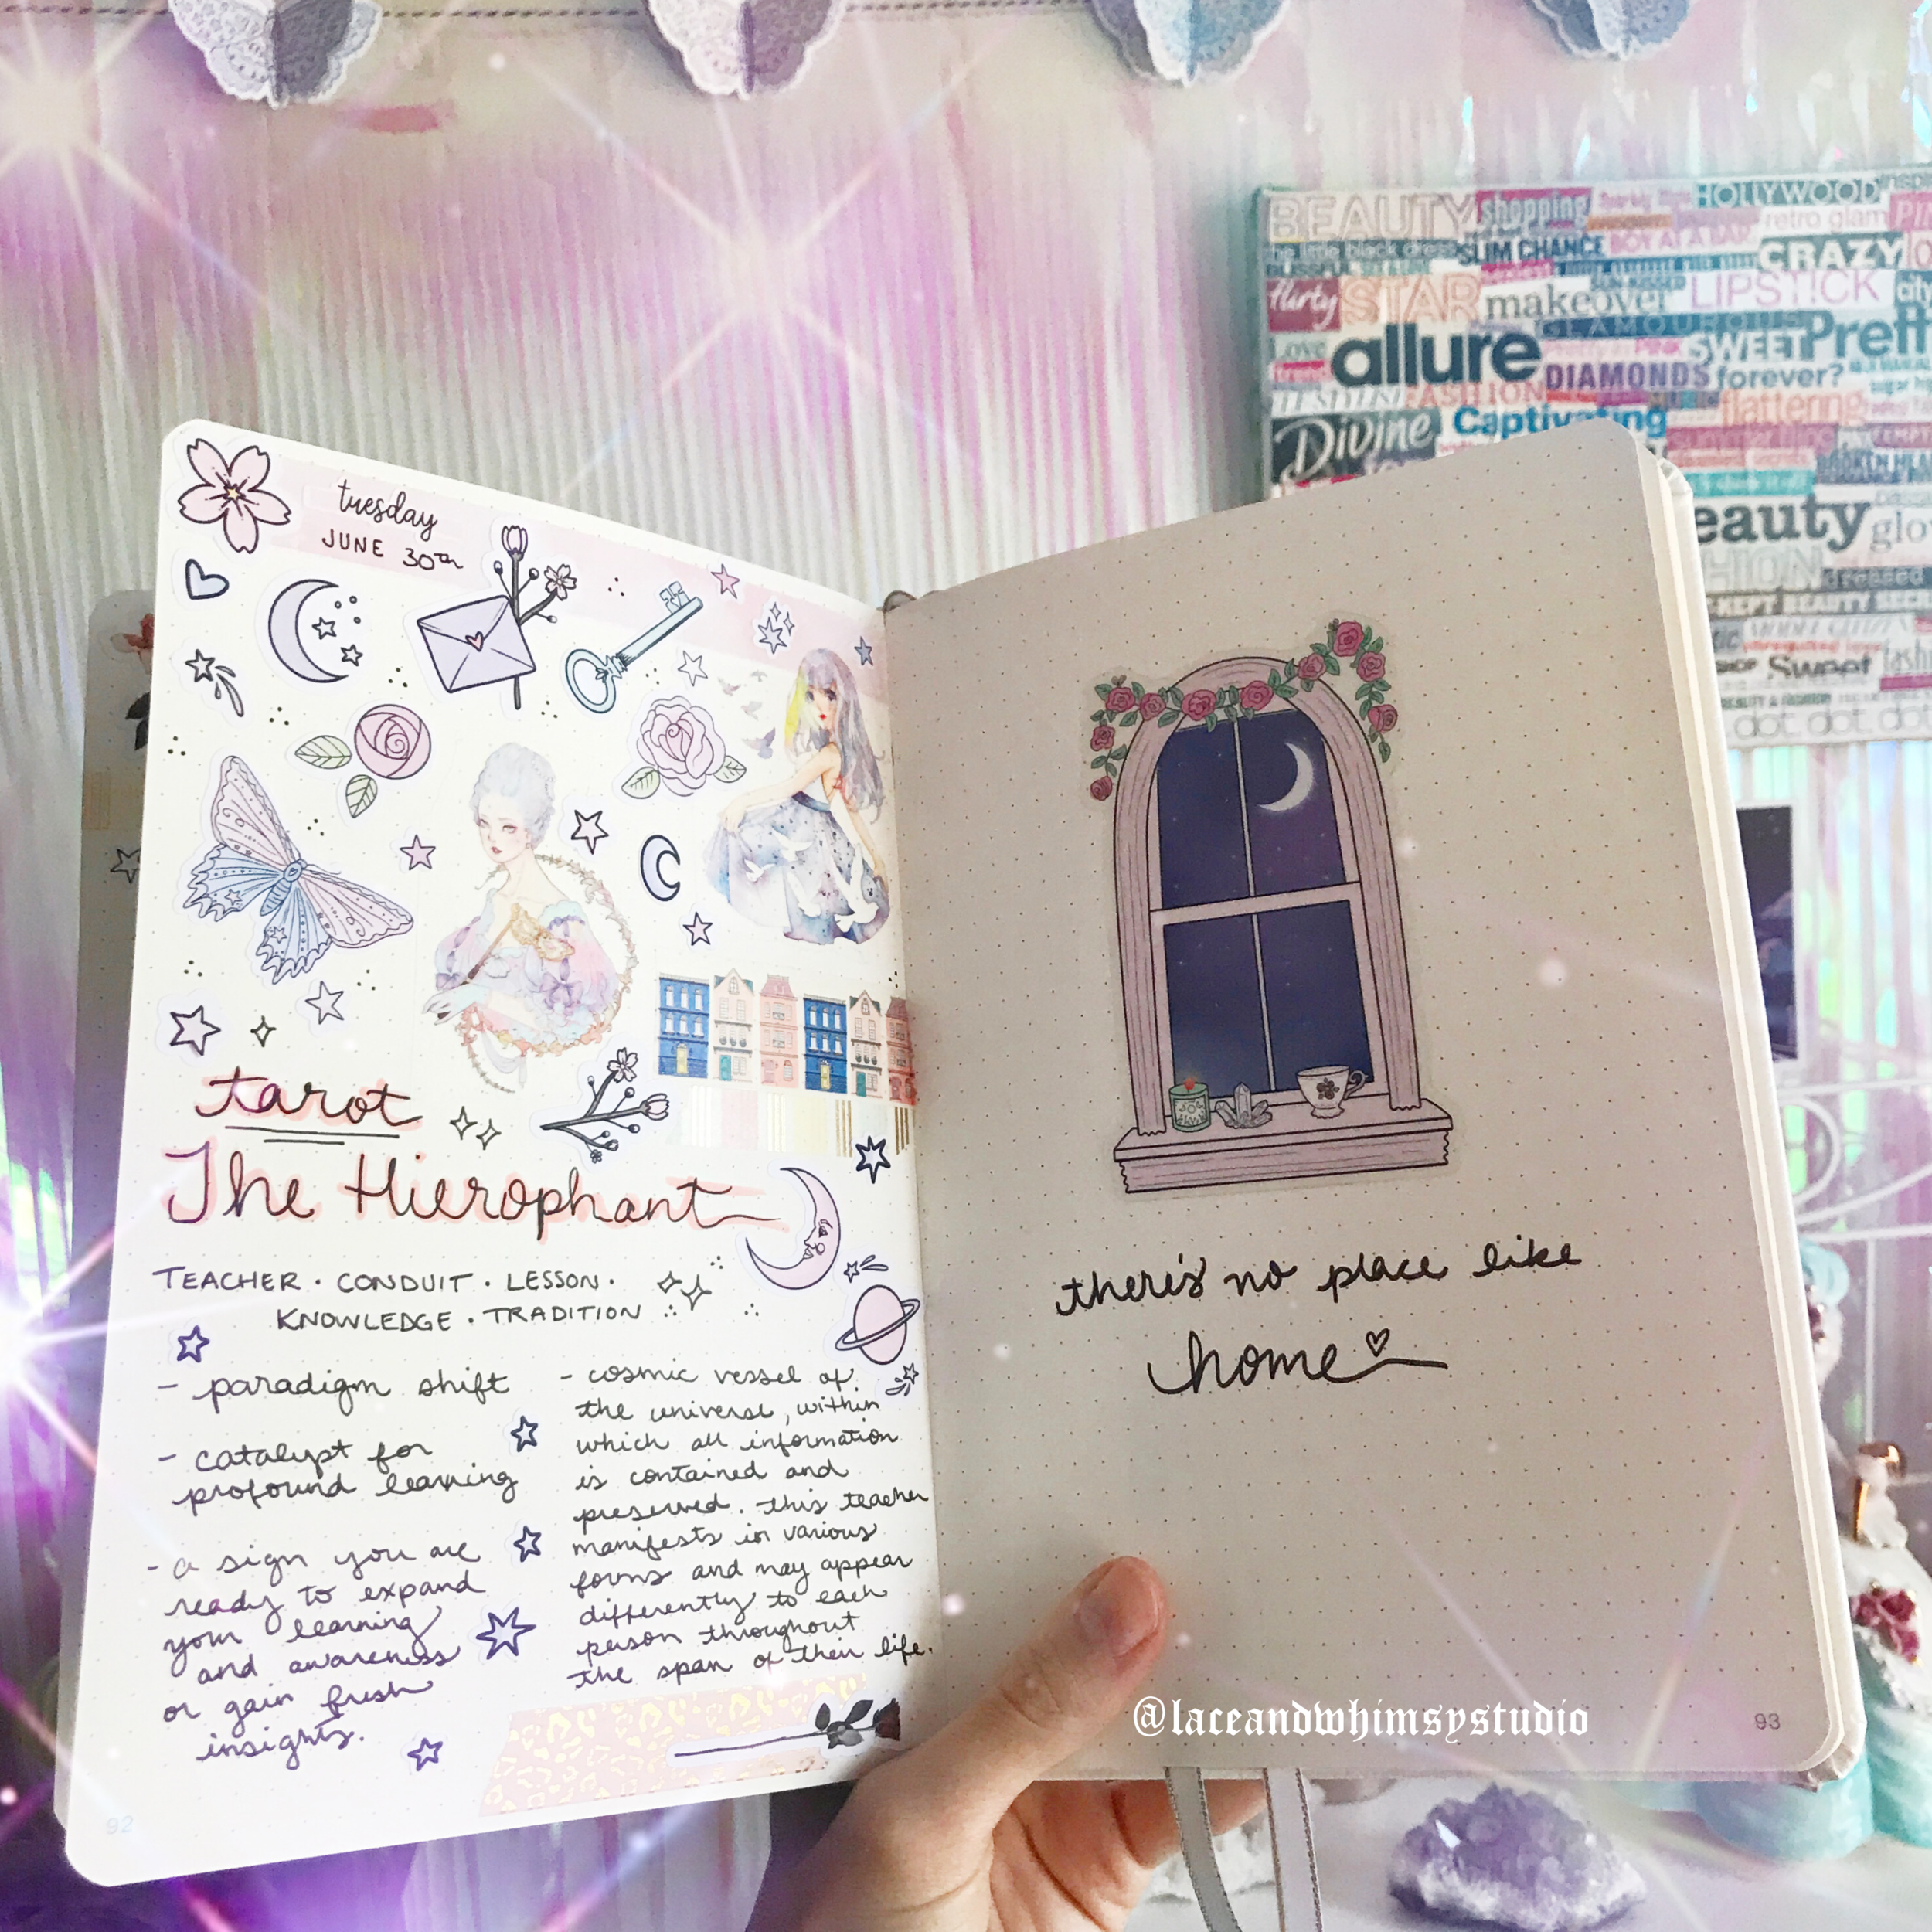 tuesday
JUNE 30TH
tarot
The Hierophant
TEACHER · CONDUIT · LESSON ·
KNOWLEDGE · TRADITION
- paradigm shift
- catalypt for
profound learning
- a sign you are
ready to expand
your learning
and awareness
or gain fresh
insights.
- cosmic vessel of
the universe, within
which all information
is contained and
preserved. this teacher
manifests in various
forms and may appear
differently to each
person throughout
the span of their life.
92
there's no place like
home
@laceandwhimsystudio
93
BEAUTY shopping HOLLYWOOD
the little black dress SLIM CHANCE BOY AT A BAD CRAZY
flirty STAR makeover LIPSTICK city
GLAMOUROUS
Love allure SWEET Prett
DIAMONDS forever?
FASHION flattering
Divine Captivating
BROKEN HEA
eauty glo
HION dressed
KEPT BEAUTY SEC
Sweet fashi
dot dot dot